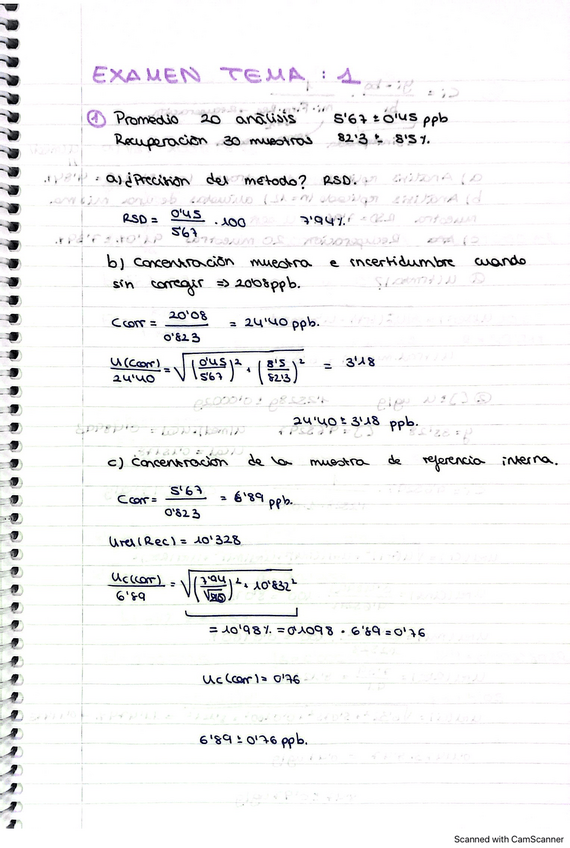 EXAMEN TEMA : 1
① Promedio 20 análisis 5'67 ± 0'45 ppb
Recuperación 30 muestras 82'3 ± 8'5%.
a) ¿Precisión del método? RSD.
RSD = 0'45 / 5'67 · 100 7'94%
b) Concentración muestra e incertidumbre cuando
sin corregir => 20'08 ppb.
Ccorr = 20'08 / 0'823 = 24'40 ppb.
U(Ccorr) / 24'40 = √(0'45 / 5'67)² + (8'5 / 82'3)² = 3'18
24'40 ± 3'18 ppb.
c) Concentración de la muestra de referencia interna.
Ccorr = 5'67 / 0'823 = 6'89 ppb.
Urel(Rec) = 10'328
Uc(corr) / 6'89 = √(7'94 / √20)² + 10'832²
= 10'98% = 0'1098 · 6'89 = 0'76
Uc(corr) = 0'76
6'89 ± 0'76 ppb.
Scanned with CamScanner